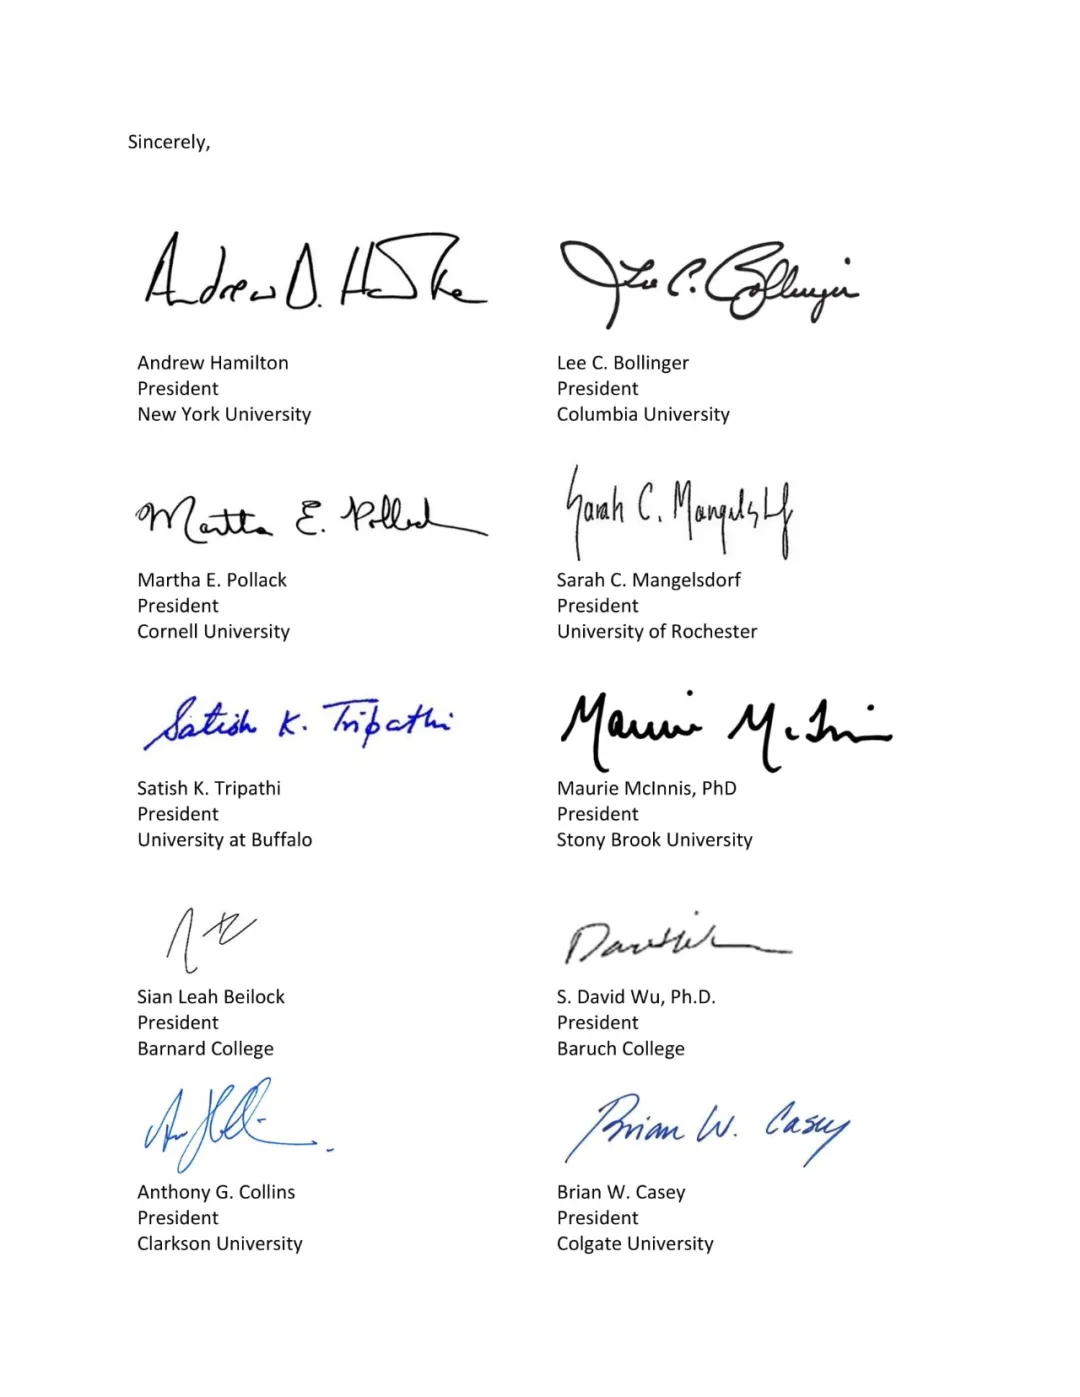 Sincerely,
Andrew D. Ha
Lee C. Bollinger
Andrew Hamilton
President
New York University
Lee C. Bollinger
President
Columbia University
Martha E. Pollack
Sarah C. Mangelsdorf
Martha E. Pollack
President
Cornell University
Sarah C. Mangelsdorf
President
University of Rochester
Satish K. Tripathi
Maurie McInnis
Satish K. Tripathi
President
University at Buffalo
Maurie McInnis, PhD
President
Stony Brook University
Sian Leah Beilock
President
Barnard College
David Wu
S. David Wu, Ph.D.
President
Baruch College
Brian W. Casey
Anthony G. Collins
President
Clarkson University
Brian W. Casey
President
Colgate University